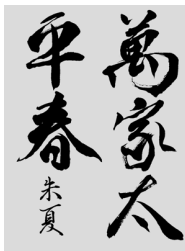 萬家太
平春
朱夏